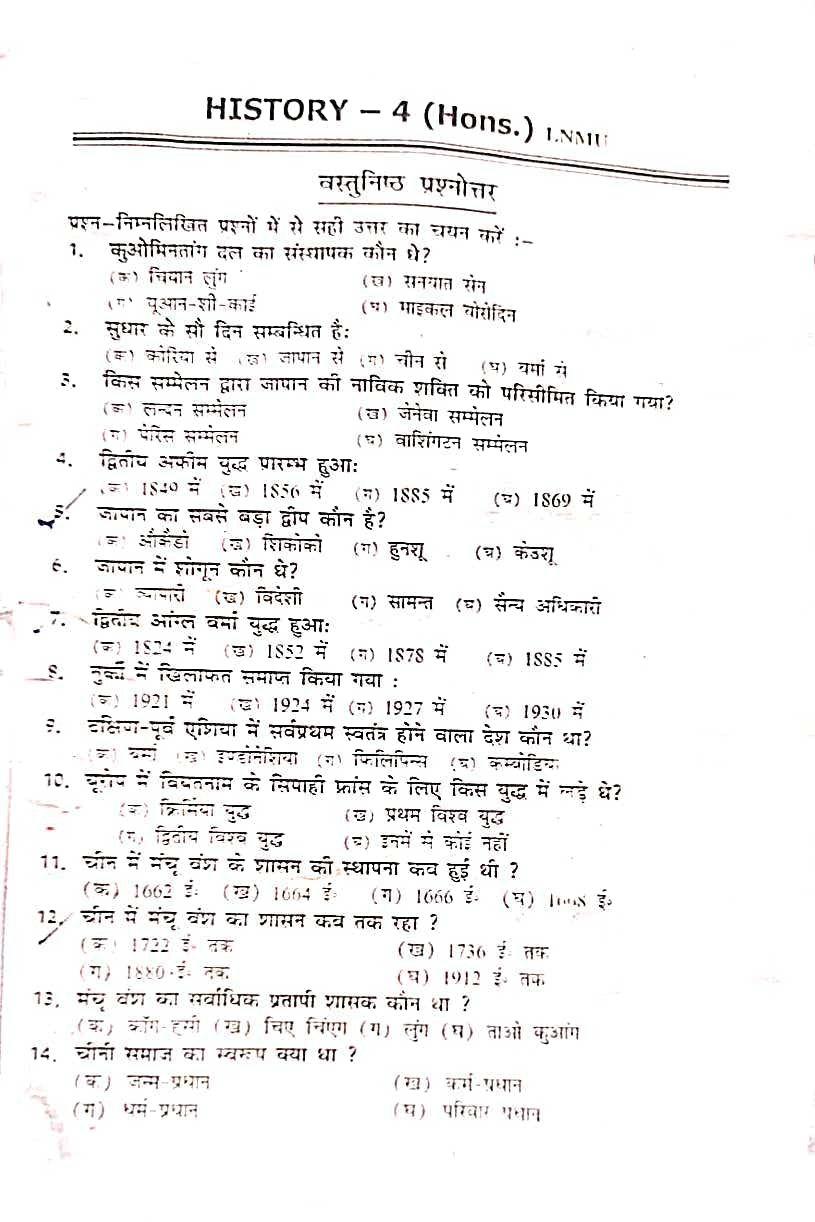 HISTORY – 4 (Hons.) LNMU
वस्तुनिष्ठ प्रश्नोत्तर
प्रश्न–निम्नलिखित प्रश्नों में से सही उत्तर का चयन करें :–
1. कुओमिनतांग दल का संस्थापक कौन थे?
(क) चियान लुंग (ख) सनयात सेन
(ग) यूआन-शी-काई (घ) माइकल वोरोदिन
2. सुधार के सौ दिन सम्बन्धित है:
(क) कोरिया से (ख) जापान से (ग) चीन से (घ) वर्मा से
3. किस सम्मेलन द्वारा जापान की नाविक शक्ति को परिसीमित किया गया?
(क) लन्दन सम्मेलन (ख) जेनेवा सम्मेलन
(ग) पेरिस सम्मेलन (घ) वाशिंगटन सम्मेलन
4. द्वितीय अफीम युद्ध प्रारम्भ हुआ:
(क) 1849 में (ख) 1856 में (ग) 1885 में (घ) 1869 में
5. जापान का सबसे बड़ा द्वीप कौन है?
(क) औकैडो (ख) शिकोको (ग) हुनशू (घ) केउशू
6. जापान में शोगून कौन थे?
(क) व्यापारी (ख) विदेशी (ग) सामन्त (घ) सैन्य अधिकारी
7. द्वितीय आंग्ल वर्मा युद्ध हुआ:
(क) 1824 में (ख) 1852 में (ग) 1878 में (घ) 1885 में
8. तुर्की में खिलाफत समाप्त किया गया :
(क) 1921 में (ख) 1924 में (ग) 1927 में (घ) 1930 में
9. दक्षिण-पूर्व एशिया में सर्वप्रथम स्वतंत्र होने वाला देश कौन था?
(क) वर्मा (ख) इण्डोनेशिया (ग) फिलिपिन्स (घ) कम्बोडिया
10. यूरोप में वियतनाम के सिपाही फ्रांस के लिए किस युद्ध में लड़े थे?
(क) क्रिमिया युद्ध (ख) प्रथम विश्व युद्ध
(ग) द्वितीय विश्व युद्ध (घ) इनमें से कोई नहीं
11. चीन में मंचू वंश के शासन की स्थापना कव हुई थी ?
(क) 1662 ई॰ (ख) 1664 ई॰ (ग) 1666 ई॰ (घ) 1668 ई॰
12. चीन में मंचू वंश का शासन कव तक रहा ?
(क) 1722 ई॰ तक (ख) 1736 ई॰ तक
(ग) 1880 ई॰ तक (घ) 1912 ई॰ तक
13. मंचू वंश का सर्वाधिक प्रतापी शासक कौन था ?
(क) कॉंग-हसी (ख) चिए चिंएग (ग) लुंग (घ) ताओ कुआंग
14. चीनी समाज का स्वरूप क्या था ?
(क) जन्म-प्रधान (ख) कर्म-प्रधान
(ग) धर्म-प्रधान (घ) परिवार प्रधान